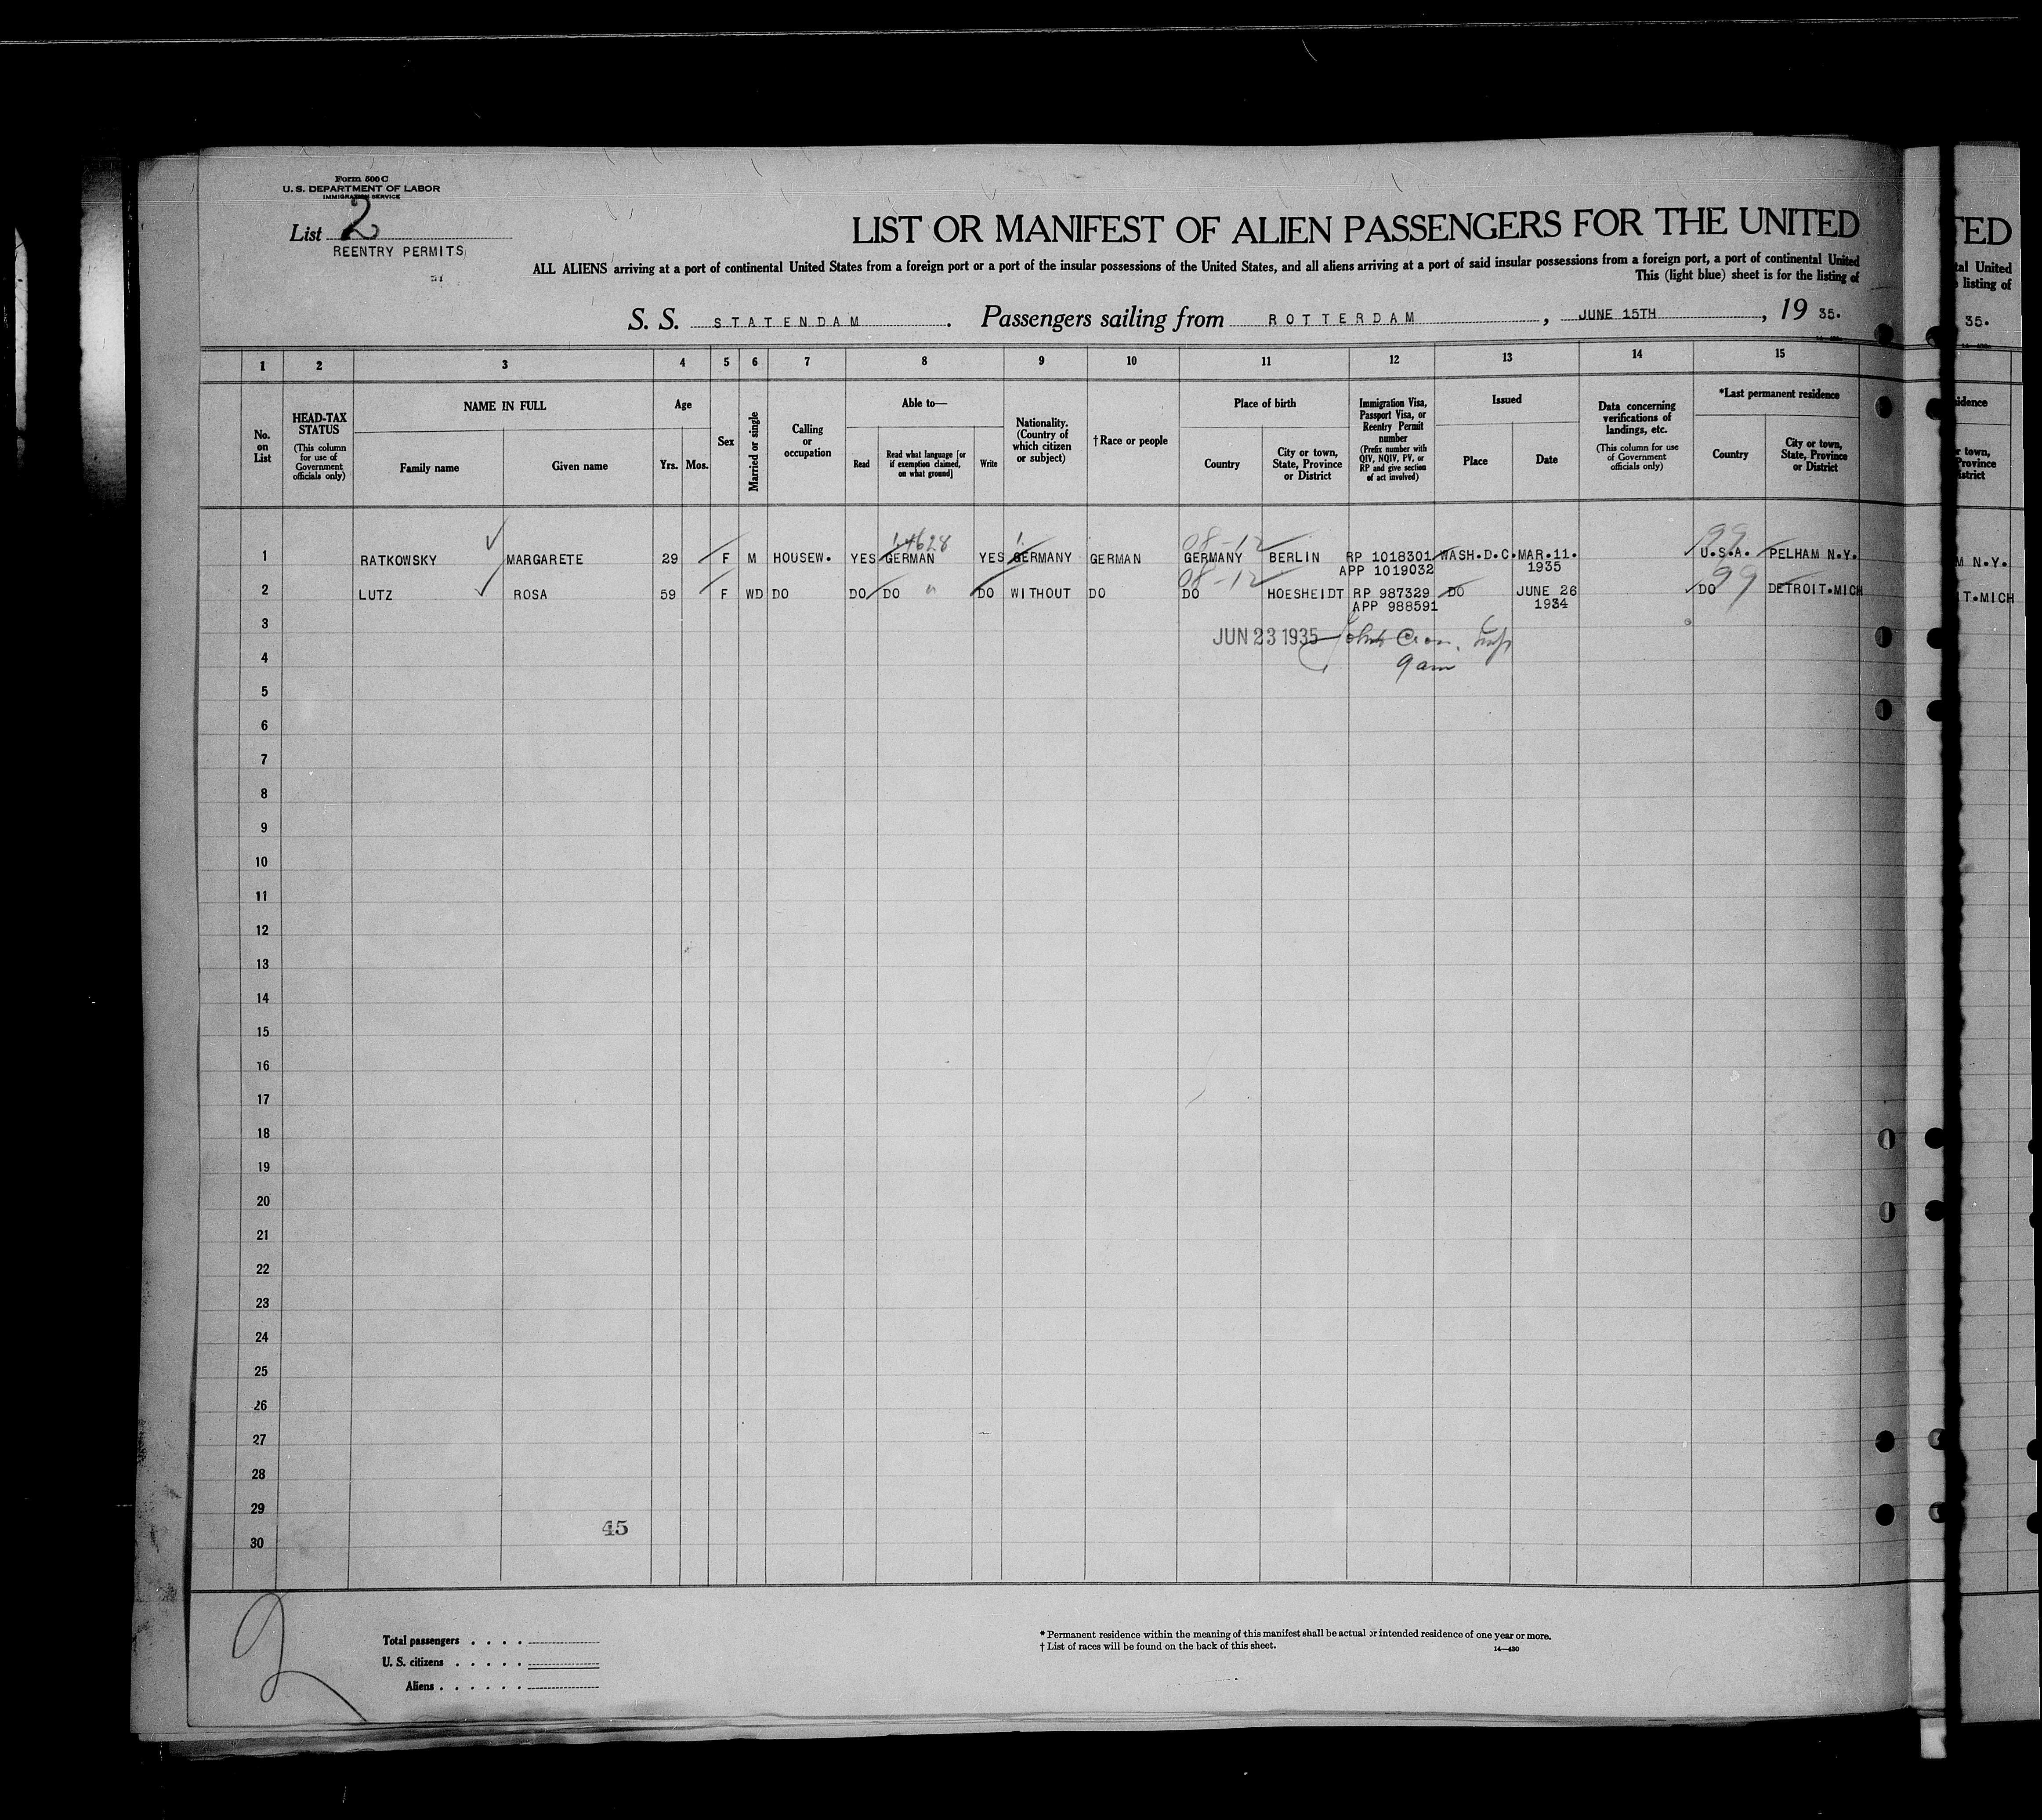 Form 500 C
U. S. DEPARTMENT OF LABOR
IMMIGRATION SERVICE
List 2
REENTRY PERMITS
LIST OR MANIFEST OF ALIEN PASSENGERS FOR THE UNITED
ALL ALIENS arriving at a port of continental United States from a foreign port or a port of the insular possessions of the United States, and all aliens arriving at a port of said insular possessions from a foreign port, a port of continental United
This (light blue) sheet is for the listing of
S. S. STATENDAM. Passengers sailing from ROTTERDAM, JUNE 15TH, 19 35.
1 2 3 4 5 6 7 8 9 10 11 12 13 14 15
No. on List
HEAD-TAX STATUS (This column for use of Government officials only)
NAME IN FULL
Family name
Given name
Age
Yrs. Mos.
Sex
Married or single
Calling or occupation
Able to—
Read
Read what language [or if exemption claimed, on what ground]
Write
Nationality. (Country of which citizen or subject)
†Race or people
Place of birth
Country
City or town, State, Province or District
Immigration Visa, Passport Visa, or Reentry Permit number (Prefix number with QIV, NQIV, PV, or RP and give section of act involved)
Issued
Place
Date
Data concerning verifications of landings, etc. (This column for use of Government officials only)
*Last permanent residence
Country
City or town, State, Province or District
14628
08-12
99
1 RATKOWSKY MARGARETE 29 F M HOUSEW. YES GERMAN YES GERMANY GERMAN GERMANY BERLIN RP 1018301 WASH.D.C. MAR.11. U.S.A. PELHAM N.Y.
APP 1019032 1935
08-12
99
2 LUTZ ROSA 59 F WD DO DO DO " DO WITHOUT DO DO HOESHEIDT RP 987329 DO JUNE 26 DO DETROIT.MICH
APP 988591 1934
3 JUN 23 1935
4 9 am
5
6
7
8
9
10
11
12
13
14
15
16
17
18
19
20
21
22
23
24
25
26
27
28
29
45
30
2
Total passengers
U. S. citizens
Aliens
* Permanent residence within the meaning of this manifest shall be actual or intended residence of one year or more.
† List of races will be found on the back of this sheet.
14—430
TED
tal United
listing of
35.
idence
r town,
Province
istrict
M N.Y.
T.MICH